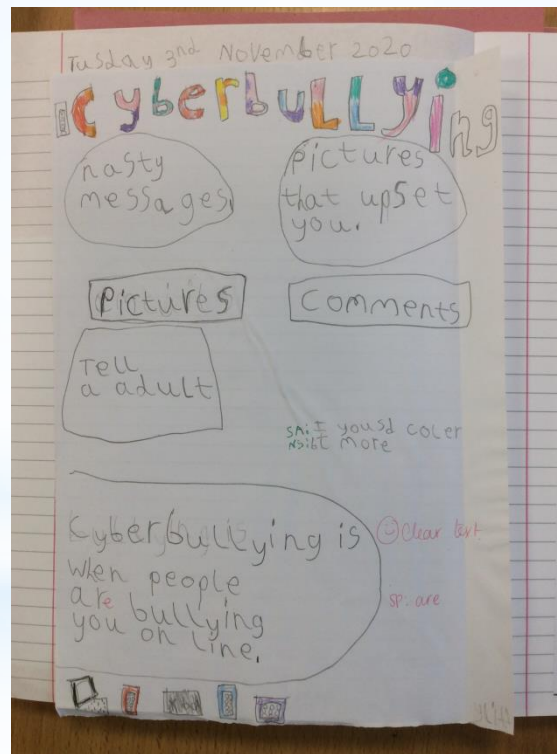 Tusday 3nd November 2020
cyberbullying
nasty
messages.
pictures
that upset
you.
Pictures
Comments
Tell
a adult
I yousd coler
more
Cyberbullying is
when people
are bullying
you on line.
Clear text.
sp. are